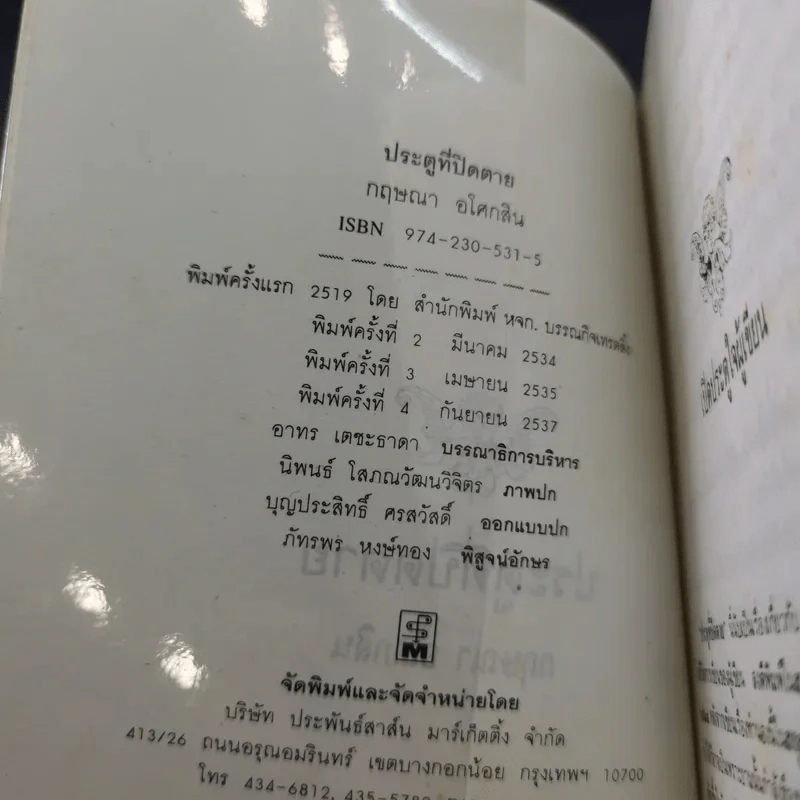 ประตูที่ปิดตาย
กฤษณา อโศกสิน
ISBN 974-230-531-5
พิมพ์ครั้งแรก 2519 โดย สำนักพิมพ์ หจก. บรรณกิจเทรดดิ้ง
พิมพ์ครั้งที่ 2 มีนาคม 2534
พิมพ์ครั้งที่ 3 เมษายน 2535
พิมพ์ครั้งที่ 4 กันยายน 2537
อาทร เตชะธาดา บรรณาธิการบริหาร
นิพนธ์ โสภณวัฒนวิจิตร ภาพปก
บุญประสิทธิ์ ศรสวัสดิ์ ออกแบบปก
ภัทรพร หงษ์ทอง พิสูจน์อักษร
จัดพิมพ์และจัดจำหน่ายโดย
บริษัท ประพันธ์สาส์น มาร์เก็ตติ้ง จำกัด
413/26 ถนนอรุณอมรินทร์ เขตบางกอกน้อย กรุงเทพฯ 10700
โทร 434-6812,
เปิดประตูใจผู้เขียน